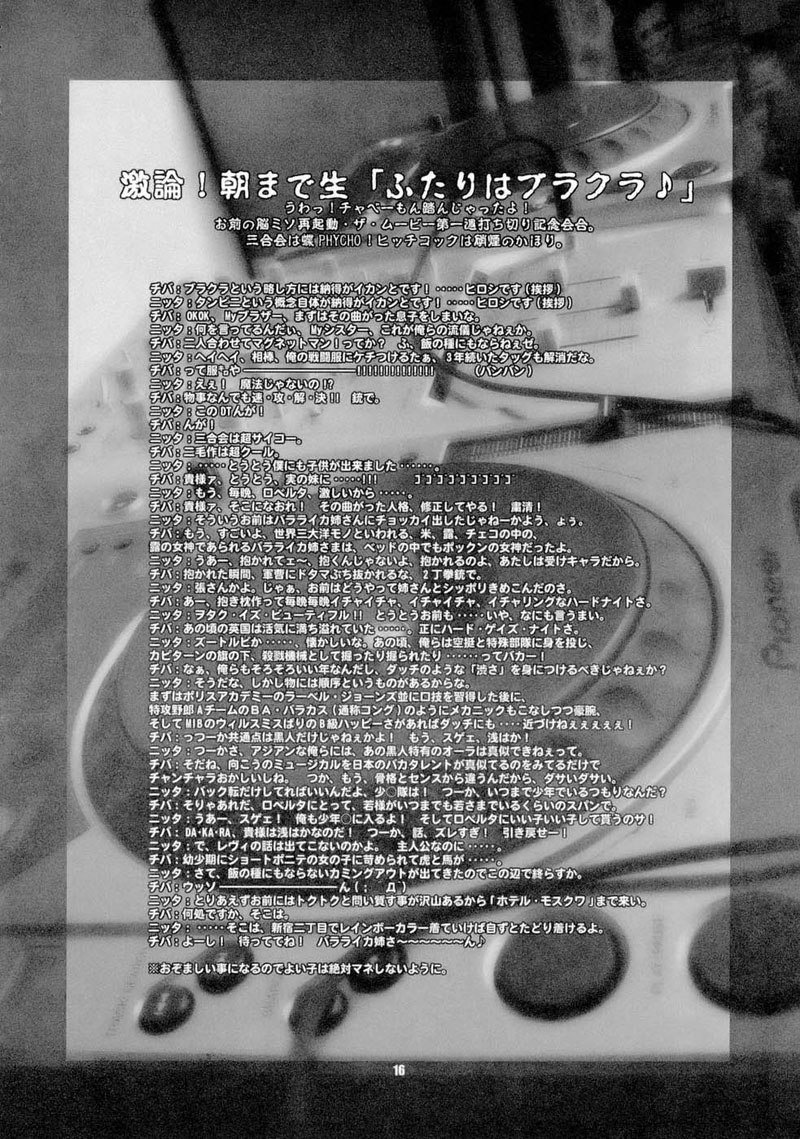 激論！朝まで生「ふたりはブラクラ♪」
うわっ！チャベーもん踏んじゃったよ！
お前の脳ミソ再起動・ザ・ムービー第一週打ち切り記念会合。
三合会は蝶PHYCHO！ヒッチコックは硝煙のかほり。
チバ：ブラクラという略し方には納得がイカンとです！‥‥‥ヒロシです（挨拶）
ニッタ：タンビニという概念自体が納得がイカンとです！‥‥‥ヒロシです（挨拶）
チバ：OKOK、Myブラザー、まずはその曲がった息子をしまいな。
ニッタ：何を言ってるんだい、Myシスター、これが俺らの流儀じゃねぇか。
チバ：二人合わせてマグネットマン！ってか？　ふ、飯の種にもならねぇぜ。
ニッタ：ヘイヘイ、相棒、俺の戦闘服にケチつけるたぁ、3年続いたタッグも解消だな。
チバ：って服もや――――――――!!!!!!!!!!!!!!　（パンパン）
ニッタ：えぇ！　魔法じゃないの!?
チバ：物事なんでも速・攻・解・決!!　銃で。
ニッタ：この DT んが！
チバ：んが！
ニッタ：三合会は超サイコー。
チバ：三毛作は超クール。
ニッタ：‥‥‥とうとう僕にも子供が出来ました‥‥‥。
チバ：貴様ァ、とうとう、実の妹に‥‥‥!!!　ｺﾞｺﾞｺﾞｺﾞｺﾞｺﾞｺﾞｺﾞｺﾞ
ニッタ：もう、毎晩、ロベルタ、激しいから‥‥‥。
チバ：貴様ァ、そこになおれ！　その曲がった人格、修正してやる！　粛清！
ニッタ：そういうお前はバラライカ姉さんにチョッカイ出したじゃねーかよう、ょぅ。
チバ：もう、すごいよ、世界三大洋モノといわれる、米、露、チェコの中の、
露の女神であられるバラライカ姉さまは、ベッドの中でもボックンの女神だったよ。
ニッタ：うあー、抱かれてェ～、抱くんじゃないよ、抱かれるのよ、あたしは受けキャラだから。
チバ：抱かれた瞬間、軍曹にドタマぶち抜かれるな、２丁拳銃で。
ニッタ：張さんかよ。じゃぁ、お前はどうやって姉さんとシッポリきめこんだのさ。
チバ：あー、抱き枕作って毎晩毎晩イチャイチャ、イチャイチャ、イチャリングなハードナイトさ。
ニッタ：ヲタク・イズ・ビューティフル!!　とうとうお前も‥‥‥いや、なにも言うまい。
チバ：あの頃の英国は活気に満ち溢れていた‥‥‥。正にハード・ゲイズ・ナイトさ。
ニッタ：ズートルビか‥‥‥、懐かしいな。あの頃、俺らは空挺と特殊部隊に身を投じ、
カピターンの旗の下、殺戮機械として掘ったり掘られたり‥‥‥ってバカー！
チバ：なぁ、俺らもそろそろいい年なんだし、ダッチのような「渋さ」を身につけるべきじゃねぇか？
ニッタ：そうだな、しかし物には順序というものがあるからな。
まずはポリスアカデミーのラーベル・ジョーンズ並に口技を習得した後に、
特攻野郎ＡチームのＢＡ・バラカス（通称コング）のようにメカニックもこなしつつ豪腕、
そしてMIBのウィルスミスばりのＢ級ハッピーさがあればダッチにも‥‥近づけねぇぇぇぇぇ！
チバ：っつーか共通点は黒人だけじゃねぇかよ！　もう、スゲェ、浅はか！
ニッタ：つーかさ、アジアンな俺らには、あの黒人特有のオーラは真似できねぇって。
チバ：そだね、向こうのミュージカルを日本のバカタレントが真似てるのをみてるだけで
チャンチャラおかしいしね。　つか、もう、骨格とセンスから違うんだから、ダサいダサい。
ニッタ：バック転だけしてればいいんだよ、少○隊は！　つーか、いつまで少年でいるつもりなんだ？
チバ：そりゃあれだ、ロベルタにとって、若様がいつまでも若さまでいるくらいのスパンで。
ニッタ：うあー、スゲェ！　俺も少年○に入るよ！　そしてロベルタにいい子いい子して貰うのサ！
チバ：DA･KA･RA、貴様は浅はかなのだ！　つーか、話、ズレすぎ！　引き戻せー！
ニッタ：で、レヴィの話は出てこないのかよ。　主人公なのに‥‥‥。
チバ：幼少期にショートポニテの女の子に苛められて虎と馬が‥‥‥。
ニッタ：さて、飯の種にもならないカミングアウトが出てきたのでこの辺で終らすか。
チバ：ウッソ――――――――ん（；　Д｀）
ニッタ：とりあえずお前にはトクトクと問い質す事が沢山あるから「ホテル・モスクワ」まで来い。
チバ：何処ですか、そこは。
ニッタ：‥‥‥そこは、新宿二丁目でレインボーカラー着ていけば自ずとたどり着けるよ。
チバ：よーし！　待っててね！　バラライカ姉さ～～～～～～ん♪
※おぞましい事になるのでよい子は絶対マネしないように。
Pioneer
16